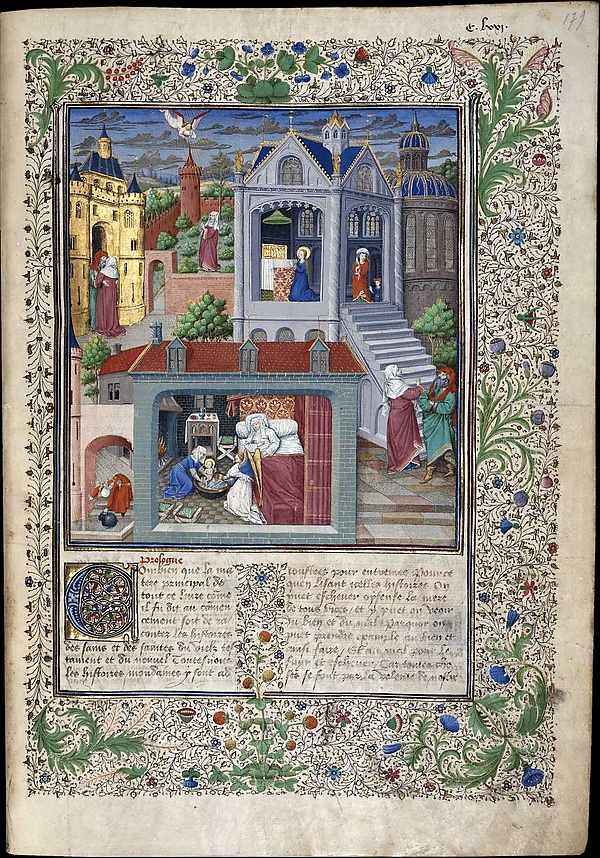 C. lxvi.
179
Prologue
Combien que la ma
tere principal de
tout ce liure côme
il fu dit au comen
cement soit de ra
conter les histoires
des sains et des saintes du vielz tes
tament et du nouuel Toutesuoies
les histoires mondaines y sont ad
ioustees pour entremes Pource
quen lisant icelles histoires on
puet eschieuer oyseuse la mere
de tous vices et y puet on veoir
du bien et du mal Parquoy on
puet prendre exemple au bien et
ainsi faire, Et au mal pour le
fuyr et eschieuer Car toutes cho
ses se font par la volente de nostre